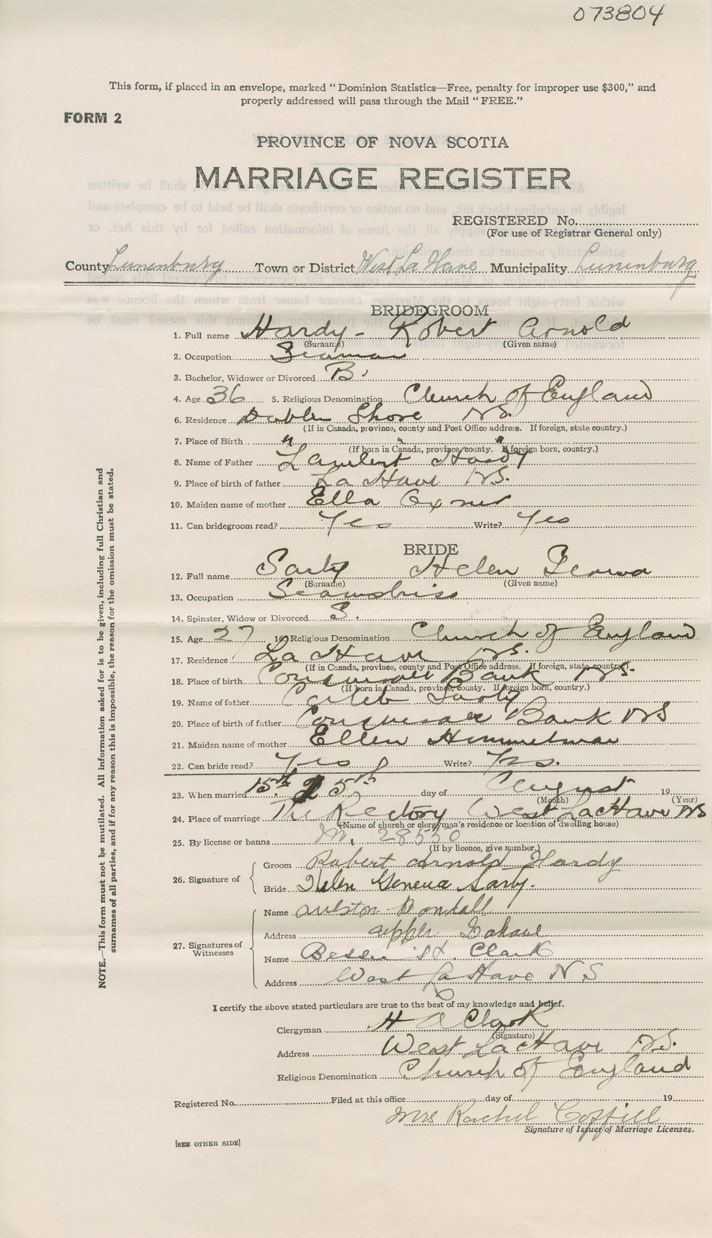 073804
This form, if placed in an envelope, marked "Dominion Statistics—Free, penalty for improper use $300," and
properly addressed will pass through the Mail "FREE."
FORM 2
PROVINCE OF NOVA SCOTIA
MARRIAGE REGISTER
REGISTERED No.
(For use of Registrar General only)
County Lunenburg Town or District West La Have Municipality Lunenburg
BRIDEGROOM
1. Full name Hardy - Robert Arnold
(Surname) (Given name)
2. Occupation Seaman
3. Bachelor, Widower or Divorced B.
4. Age 36 5. Religious Denomination Church of England
6. Residence Dublin Shore N.S.
(If in Canada, province, county and Post Office address. If foreign, state country.)
7. Place of Birth " " "
(If born in Canada, province/county. If foreign born, country.)
8. Name of Father Lambert Hardy
9. Place of birth of father La Have N.S.
10. Maiden name of mother Ella Oxner
11. Can bridegroom read? Yes Write? Yes
BRIDE
12. Full name Sarty Helen
(Surname) (Given name)
13. Occupation
14. Spinster, Widow or Divorced S.
15. Age 27 16. Religious Denomination Church of England
17. Residence La Have N.S.
(If in Canada, province, county and Post Office address. If foreign, state country.)
18. Place of birth Conquerall Bank N.S.
(If born in Canada, province, county. If foreign born, country.)
19. Name of father Caleb Sarty
20. Place of birth of father Conquerall Bank NS
21. Maiden name of mother Ellen Himmelman
22. Can bride read? Yes Write? Yes.
23. When married 15th 25th day of August 19
(Month) (Year)
24. Place of marriage The Rectory West LaHave NS
(Name of church or clergyman's residence or location of dwelling house)
25. By license or banns 28550
(If by licence, give number.)
26. Signature of
Groom Robert Arnold Hardy
Bride Helen Geneva Sarty.
27. Signatures of
Witnesses
Name
Address Upper Lahave
Name Bessie H. Clark
Address West La Have N S
I certify the above stated particulars are true to the best of my knowledge and belief.
Clergyman H A Clark
(Signature)
Address West LaHave N.S.
Religious Denomination Church of England
Registered No. Filed at this office day of 19
Mrs Rachel Coffill
Signature of Issuer of Marriage Licenses.
[SEE OTHER SIDE]
NOTE.—This form must not be mutilated. All information asked for is to be given, including full Christian and
surnames of all parties, and if for any reason this is impossible, the reason for the omission must be stated.